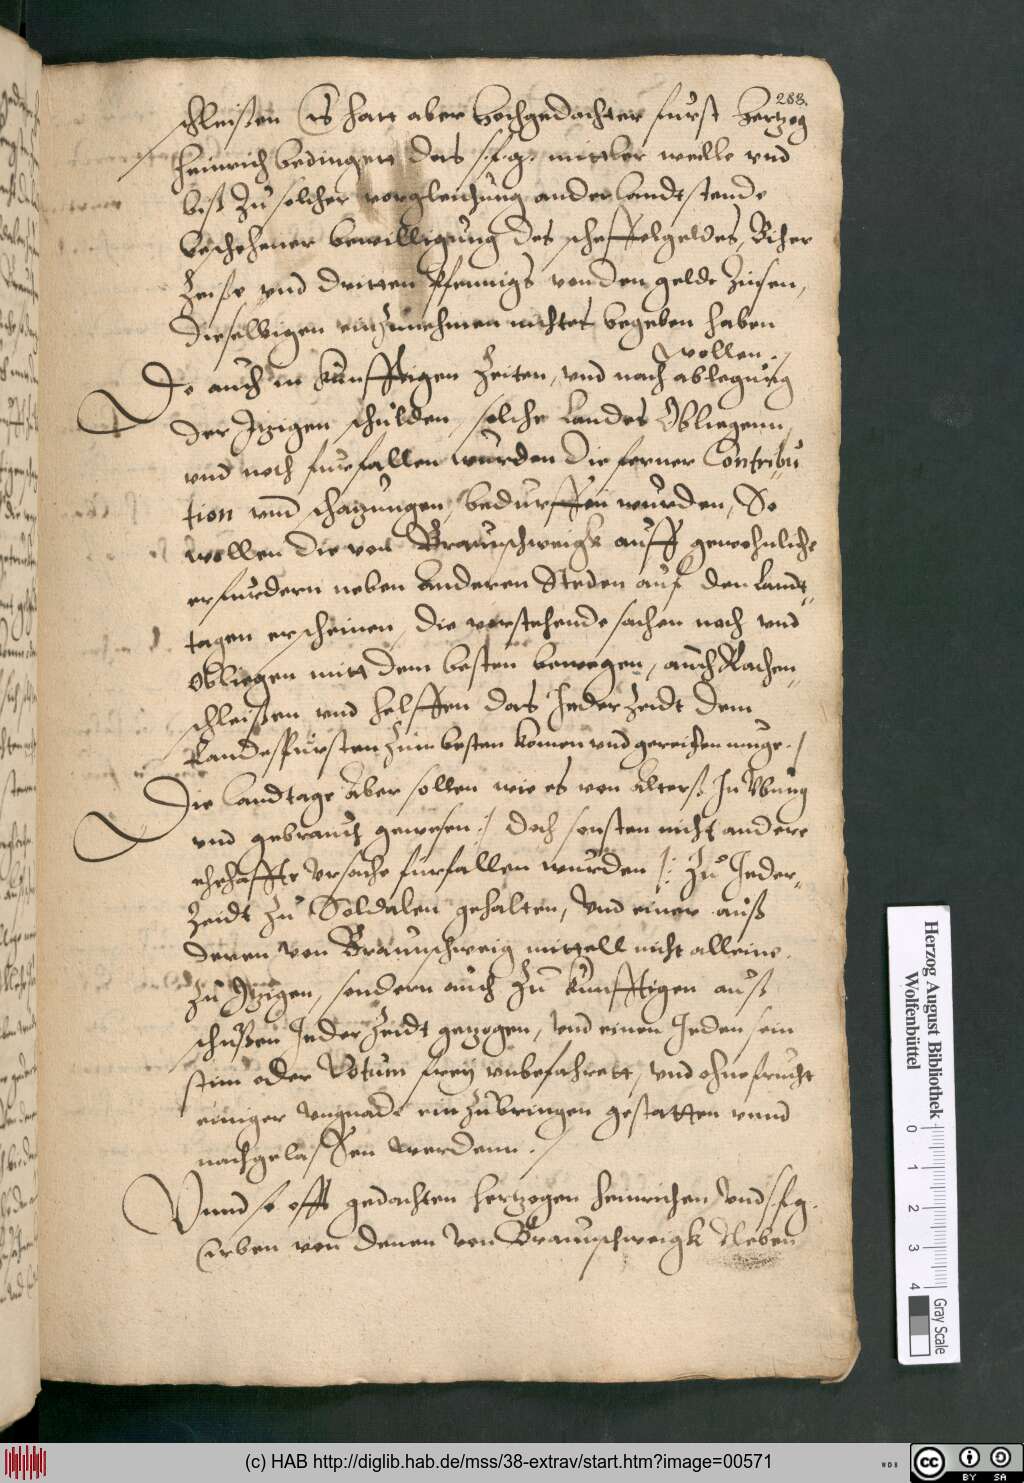 288.
schleißen Es hatt aber Hochgedachter furst Hertzog
Heinrich bedingett das s.f.g. mittler weille vnd
biß Zu solcher vorgleichung ander Landtstende
beschehener bewilligung des scheffelgeldes, Biher
Zeise vnd dritten Pfennigs von den gelde Zinsen,
dieselbigen einzunehmen nichtes begeben haben
wollen./
Do auch in kunfftigen Zeiten, vnd nach ablegung
der Itzigen schulden, solche Landes Obliegenn,
vnd noch furfallen wurden die ferner Contribu
tion vnd schatzungen, bedurffen wurden, So
wollen die von Braunschweigk auff gewohnliche
erfurdern neben Anderen Steden auf den Landt„
tagen erscheinen, die vorstehende sachen noch vnd
obliegen mitt dem besten bewegen, auch Rachen„
schleißen vnd helffen das Jeder Zeidt dem
Landesfursten Zum besten komen vnd gereichen muge./
Die Landtage Aber sollen wie es von Alterß In Vbung
vnd gebrauch gewesen / doch sonsten nicht andere
ehehaffte vrsache furfallen wurden /: Zu Jeder„
Zeidt Zu Soldalen gehalten, Vnd einer auß
deren von Braunschweig mittell nicht alleine
Zu Itzigen, sondern auch Zu kunfftigen auß
schußen Jeder Zeidt getzogen, Vnd einen Jeden sein
stim oder Votum frey vnbefahrett, vnd ohne frucht
einiger vngnade einzubringen gestatten vnnd
nachgelaßen werdenn./
Vnnd so offt gedachten Hertzogen Heinrichen, Vnd s.f.g.
Erben von denen Von Braunschweigk Neben
Herzog August Bibliothek
Wolfenbüttel
0 1 2 3 4
Gray Scale
(c) HAB http://diglib.hab.de/mss/38-extrav/start.htm?image=00571
WDB
cc BY SA